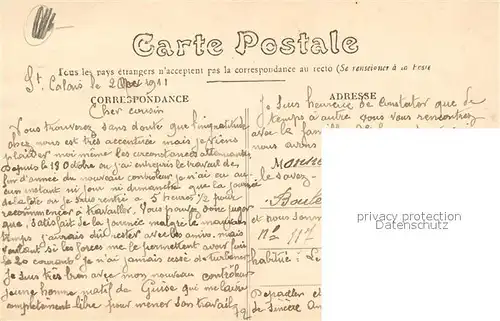 Carte Postale
Tous les pays étrangers n'acceptent pas la correspondance au recto (Se renseigner à la Poste
St Calais le 2 1911
CORRESPONDANCE
ADRESSE
Cher cousin
Vous trouverez sans doute que l'ingratitude
chez nous est très accentuée mais je viens
plaider moi même les circonstances atténuantes
Depuis le 13 Octobre où j'ai enrayé le travail de
fin d'année du nouveau contrôleur je n'ai eu au
cun instant ni jour ni dimanche que la journée
de la fête où je suis rentré à 5 heures 1/2 pour
recommencer à travailler. Vous pouvez donc juger
que, satisfait de la journée malgré le mauvais
temps j'aurais dû rester avec les amis. mais
voulant si les forces me le permettent avoir fini
le 20 courant je n'ai jamais cessé de turbiner
Je suis très bien avec mon nouveau contrôleur
jeune homme natif de Guise qui me laisse
complètement libre pour mener son travail
Je suis heureux de constater que de
temps à autre vous vous rencontrez
avec la
nous avons
le savez
et nous
No 117
habitué :
de sincère
privacy protection
watermark